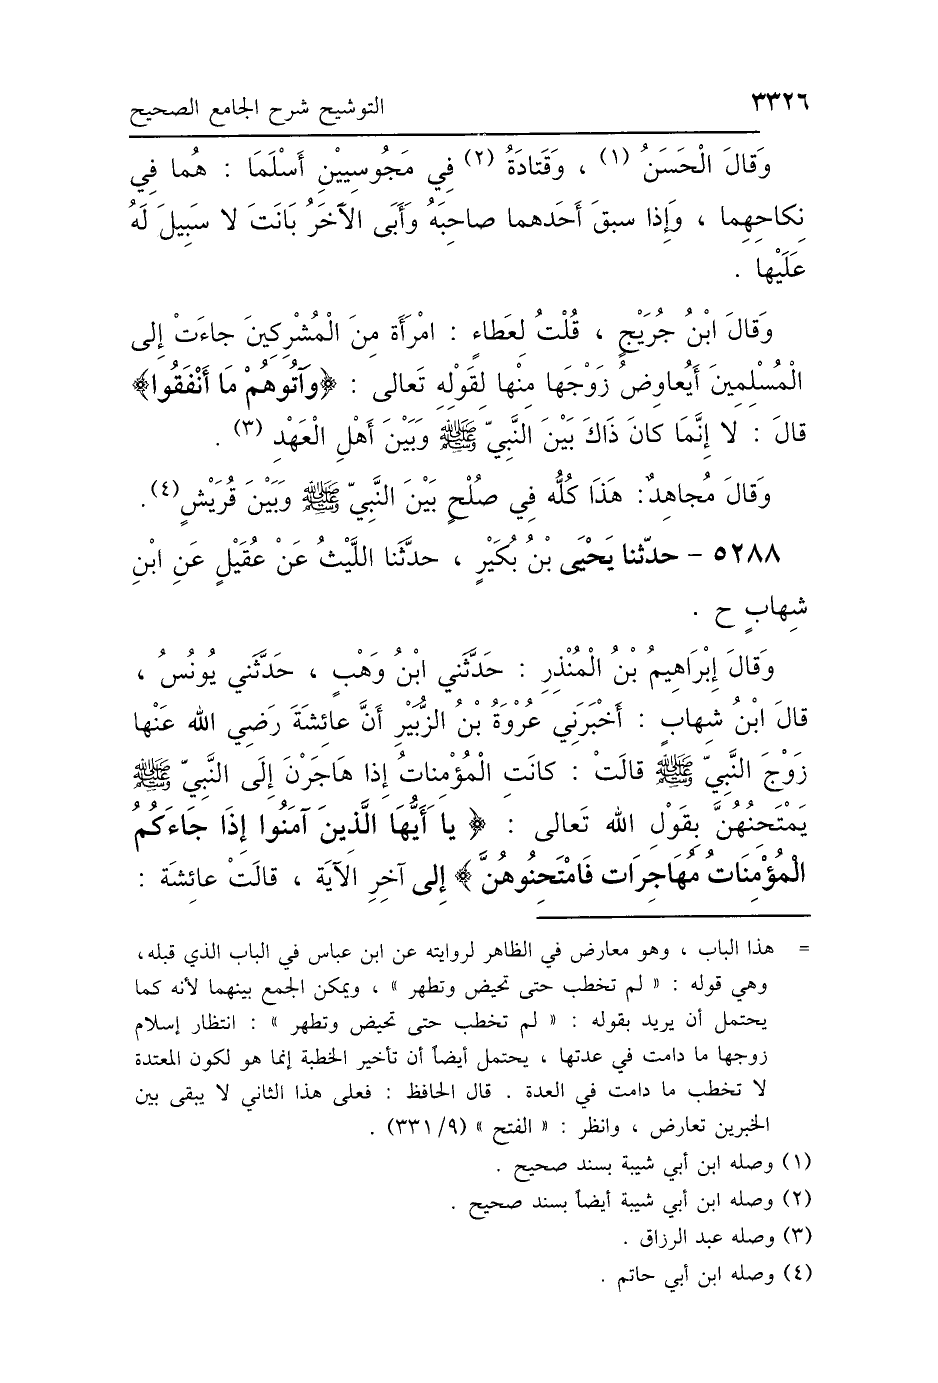 ٣٣٢٦ التوشيح شرح الجامع الصحيح
وَقَالَ الْحَسَنُ (١) ، وَقَتَادَةُ (٢) فِي مَجُوسِيَّيْنِ أَسْلَمَا : هُما فِي
نكاحِهِما ، وَإِذا سبقَ أَحَدهما صاحِبَهُ وَأَبَى الآخَرُ بَانَتَ لا سَبِيلَ لَهُ
عَلَيْها .
وَقَالَ ابْنُ جُرَيْجٍ ، قُلْتُ لعَطاءٍ : امْرَأَة مِنَ الْمُشْرِكِينَ جاءَتْ إلى
الْمُسْلِمِينَ أَيُعاوِضُ زَوْجَها مِنْها لقَوْلِهِ تَعالى : ﴿وآتُوهُمْ مَا أَنْفَقُوا﴾
قالَ : لا إِنَّمَا كانَ ذَاكَ بَيْنَ النَّبِيّ ﷺ وَبَيْنَ أَهْلِ الْعَهْدِ (٣) .
وَقَالَ مُجاهِدٌ: هَذَا كُلُّه فِي صُلْحٍ بَيْنَ النَّبِيّ ﷺ وَبَيْنَ قُرَيْشٍ(٤).
٥٢٨٨ - حدّثنا يَحْيَى بْنُ بُكَيْرٍ ، حدَّثَنا اللَّيْثُ عَنْ عُقَيْلٍ عَنِ ابْنِ
شِهابٍ ح .
وَقَالَ إِبْرَاهِيمُ بْنُ الْمُنْذِرِ : حَدَّثَنِي ابْنُ وَهْبٍ ، حَدَّثَنِي يُونُسُ ،
قالَ ابْنُ شِهابٍ : أَخْبَرَنِي عُرْوَةُ بْنُ الزُّبَيْرِ أَنَّ عائِشَةَ رَضِي الله عَنْها
زَوْجَ النَّبِيّ ﷺ قالَتْ : كانَتِ الْمُؤْمِناتُ إِذا هَاجَرْنَ إِلَى النَّبِيّ ﷺ
يَمْتَحِنُهُنَّ بِقَوْلِ الله تَعالى : ﴿ يا أَيُّهَا الَّذِينَ آمَنُوا إِذَا جَاءَكُمُ
الْمُؤْمِنَاتُ مُهَاجِرَات فَامْتَحِنُوهُنَّ ﴾ إِلى آخِرِ الآيَة ، قالَتْ عائِشَة :
= هذا الباب ، وهو معارض في الظاهر لروايته عن ابن عباس في الباب الذي قبله،
وهي قوله : « لم تخطب حتى تحيض وتطهر » ، ويمكن الجمع بينهما لأنه كما
يحتمل أن يريد بقوله : « لم تخطب حتى تحيض وتطهر » : انتظار إسلام
زوجها ما دامت في عدتها ، يحتمل أيضاً أن تأخير الخطبة إنما هو لكون المعتدة
لا تخطب ما دامت في العدة . قال الحافظ : فعلى هذا الثاني لا يبقى بين
الخبرين تعارض ، وانظر : « الفتح » (٣٣١/٩) .
(١) وصله ابن أبي شيبة بسند صحيح .
(٢) وصله ابن أبي شيبة أيضاً بسند صحيح .
(٣) وصله عبد الرزاق .
(٤) وصله ابن أبي حاتم .